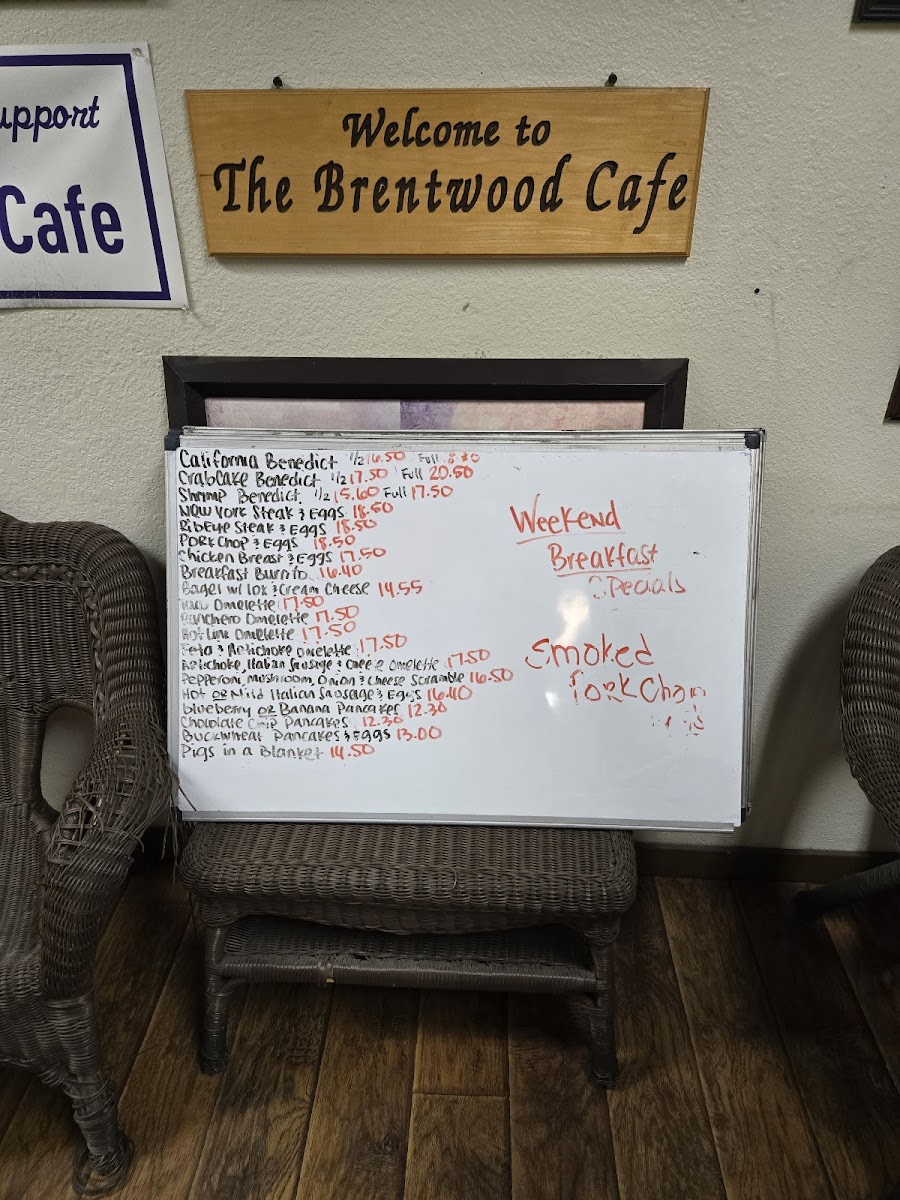 upport
Cafe
Welcome to
The Brentwood Cafe
California Benedict 1/2 16.50 Full 8.30
CrabCake Benedict 1/2 17.50 Full 20.50
Shrimp Benedict 1/2 15.60 Full 17.50
New York Steak & Eggs 18.50
RibEye Steak & Eggs 18.50
Pork Chop & Eggs 18.50
Chicken Breast & Eggs 17.50
Breakfast Burrito 16.40
Bagel w/ Lox & Cream Cheese 14.55
Omelette 17.50
Ranchero Omelette 17.50
Hot Link Omelette 17.50
Feta & Artichoke Omelette 17.50
Artichoke, Italian Sausage & Cheese Omelette 17.50
Pepperoni, Mushroom, Onion & Cheese Scramble 16.50
Hot or Mild Italian Sausage & Eggs 16.40
Blueberry or Banana Pancakes 12.30
Chocolate Chip Pancakes 12.30
Buckwheat Pancakes & Eggs 13.00
Pigs in a Blanket 14.50
Weekend
Breakfast
Specials
Smoked
Pork Chop